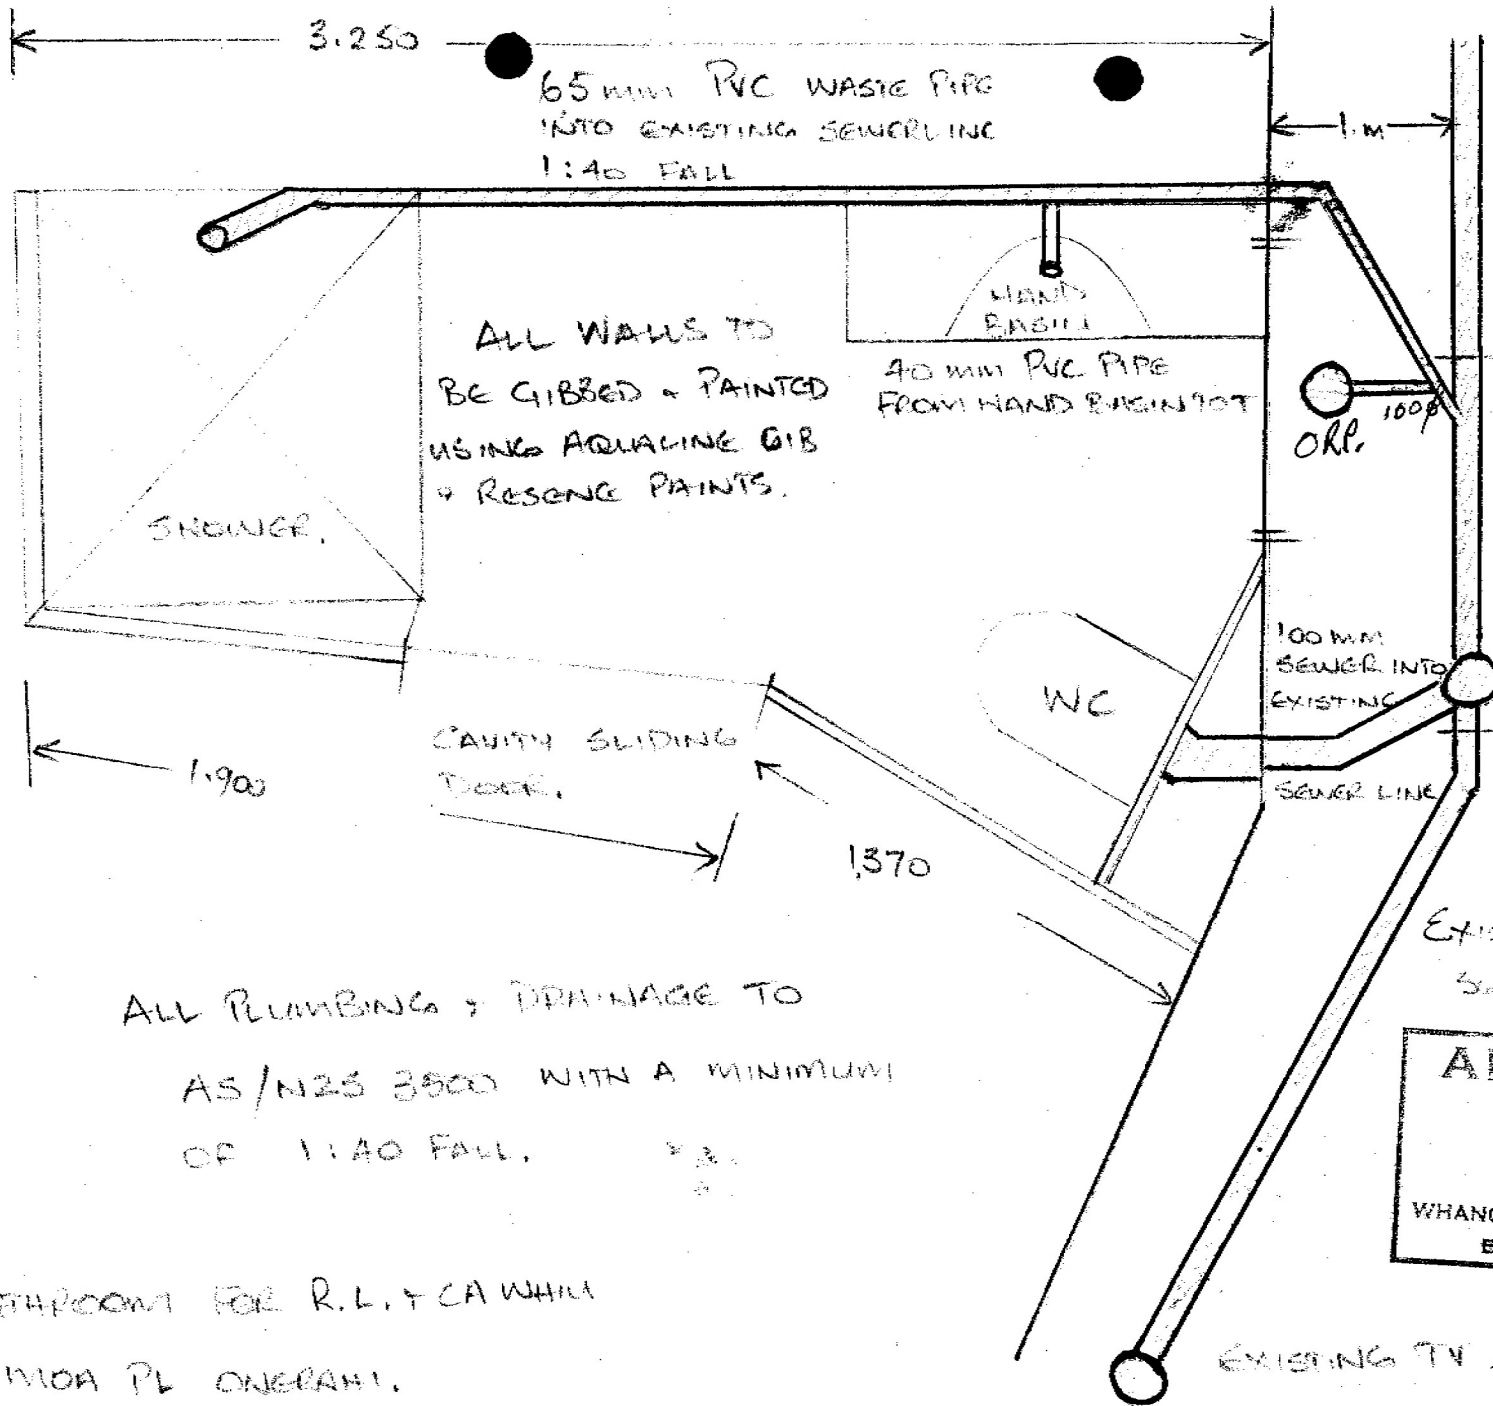 3.250
65 mm PVC WASTE PIPE
INTO EXISTING SEWERLINE
1:40 FALL
1.m
HAND
BASIN
ALL WALLS TO
BE GIBBED & PAINTED
USING AQUALINE GIB
& RESENE PAINTS.
40 mm PVC PIPE
FROM HAND BASIN
100ϕ
ORP.
SHOWER.
WC
100 MM
SEWER INTO
EXISTING
SEWER LINE
CAVITY SLIDING
DOOR.
1.900
1,370
ALL PLUMBING & DRAINAGE TO
AS/NZS 3500 WITH A MINIMUM
OF 1:40 FALL.
FOR R.L. & CA
MOA PL ONERAHI.
EXISTING TV